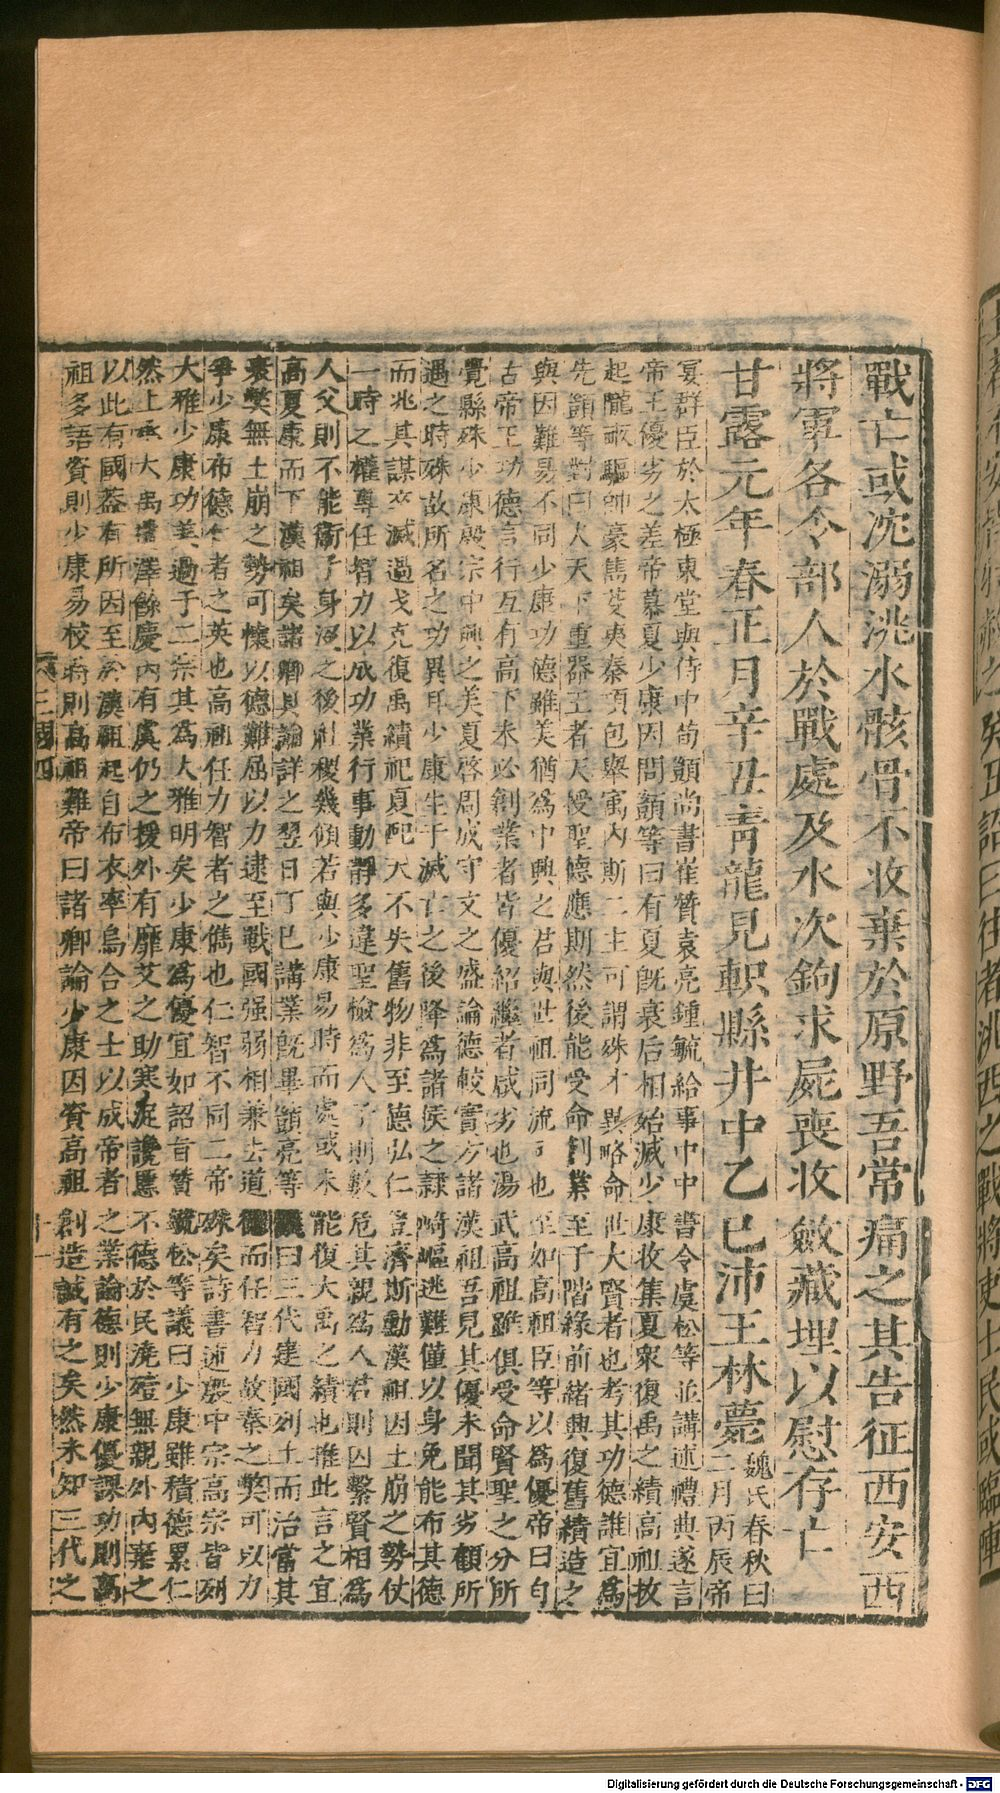 戰亡或沈溺洮水骸骨不收棄於原野吾常痛之其告征西安西
將軍各令部人於戰處及水次鉤求屍喪收斂藏埋以慰存亡
甘露元年春正月辛丑青龍見軹縣井中乙巳沛王林薨
魏氏春秋曰
二月丙辰帝
宴群臣於太極東堂與侍中荀顗尚書崔贊袁亮鍾毓給事中中書令虞松等並講述禮典遂言
帝王優劣之差帝慕夏少康因問顗等曰有夏既衰后相殆滅少康收集夏眾復禹之績高祖拔
起隴畝驅帥豪儁芟夷秦項包舉寓內斯二主可謂殊才異略命世大賢者也考其功德誰宜為
先顗等對曰夫天下重器王者天授聖德應期然後能受命創業至于階緣前緒興復舊績造之
與因難易不同少康功德雖美猶為中興之君與世祖同流可也至如高祖臣等以為優帝曰自
古帝王功德言行互有高下未必創業者皆優紹繼者咸劣也湯武高祖雖俱受命賢聖之分所
覺縣殊少康殷宗中興之美夏啓周成守文之盛論德較實方諸漢祖吾見其優未聞其劣顧所
遇之時殊故所名之功異耳少康生于滅亡之後降為諸侯之隸崎嶇逃難僅以身免能布其德
而兆其謀卒滅過戈克復禹績祀夏配天不失舊物非至德弘仁豈濟斯勳漢祖因土崩之勢仗
一時之權專任智力以成功業行事動靜多違聖檢為人子則數危其親為人君則囚繫賢相為
人父則不能衞子身沒之後社稷幾傾若與少康易時而處或未能復大禹之績也推此言之宜
高夏康而下漢祖矣諸卿具論詳之翌日丁巳講業既畢顗亮等議曰三代建國列土而治當其
衰獘無土崩之勢可懷以德難屈以力逮至戰國强弱相兼去道德而任智力故秦之獘可以力
爭少康布德仁者之英也高祖任力智者之儁也仁智不同二帝殊矣詩書述殷中宗高宗皆列
大雅少康功美過于二宗其為大雅明矣少康為優宜如詔旨贊毓松等議曰少康雖積德累仁
然上承大禹遺澤餘慶內有虞仍之援外有靡艾之助寒浞讒慝不德於民澆豷無親外內棄之
以此有國蓋有所因至於漢祖起自布衣率烏合之士以成帝者之業論德則少康優課功則高
祖多語資則少康易校時則高祖難帝曰諸卿論少康因資高祖創造誠有之矣然未知三代之
三國四
Digitalisierung gefördert durch die Deutsche Forschungsgemeinschaft - DFG